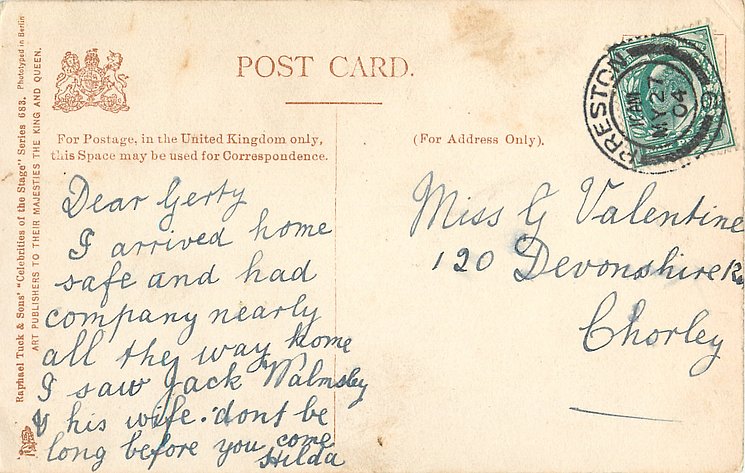 POST CARD.
For Postage, in the United Kingdom only,
this Space may be used for Correspondence.
(For Address Only).
Raphael Tuck & Sons' "Celebrities of the Stage" Series 683. Phototyped in Berlin
ART PUBLISHERS TO THEIR MAJESTIES THE KING AND QUEEN.
PRESTON
MY 27
04
Dear Gerty
I arrived home
safe and had
company nearly
all the way home
I saw Jack Walmsley
& his wife. dont be
long before you come
Hilda
Miss G Valentine
120 Devonshire Rd
Chorley